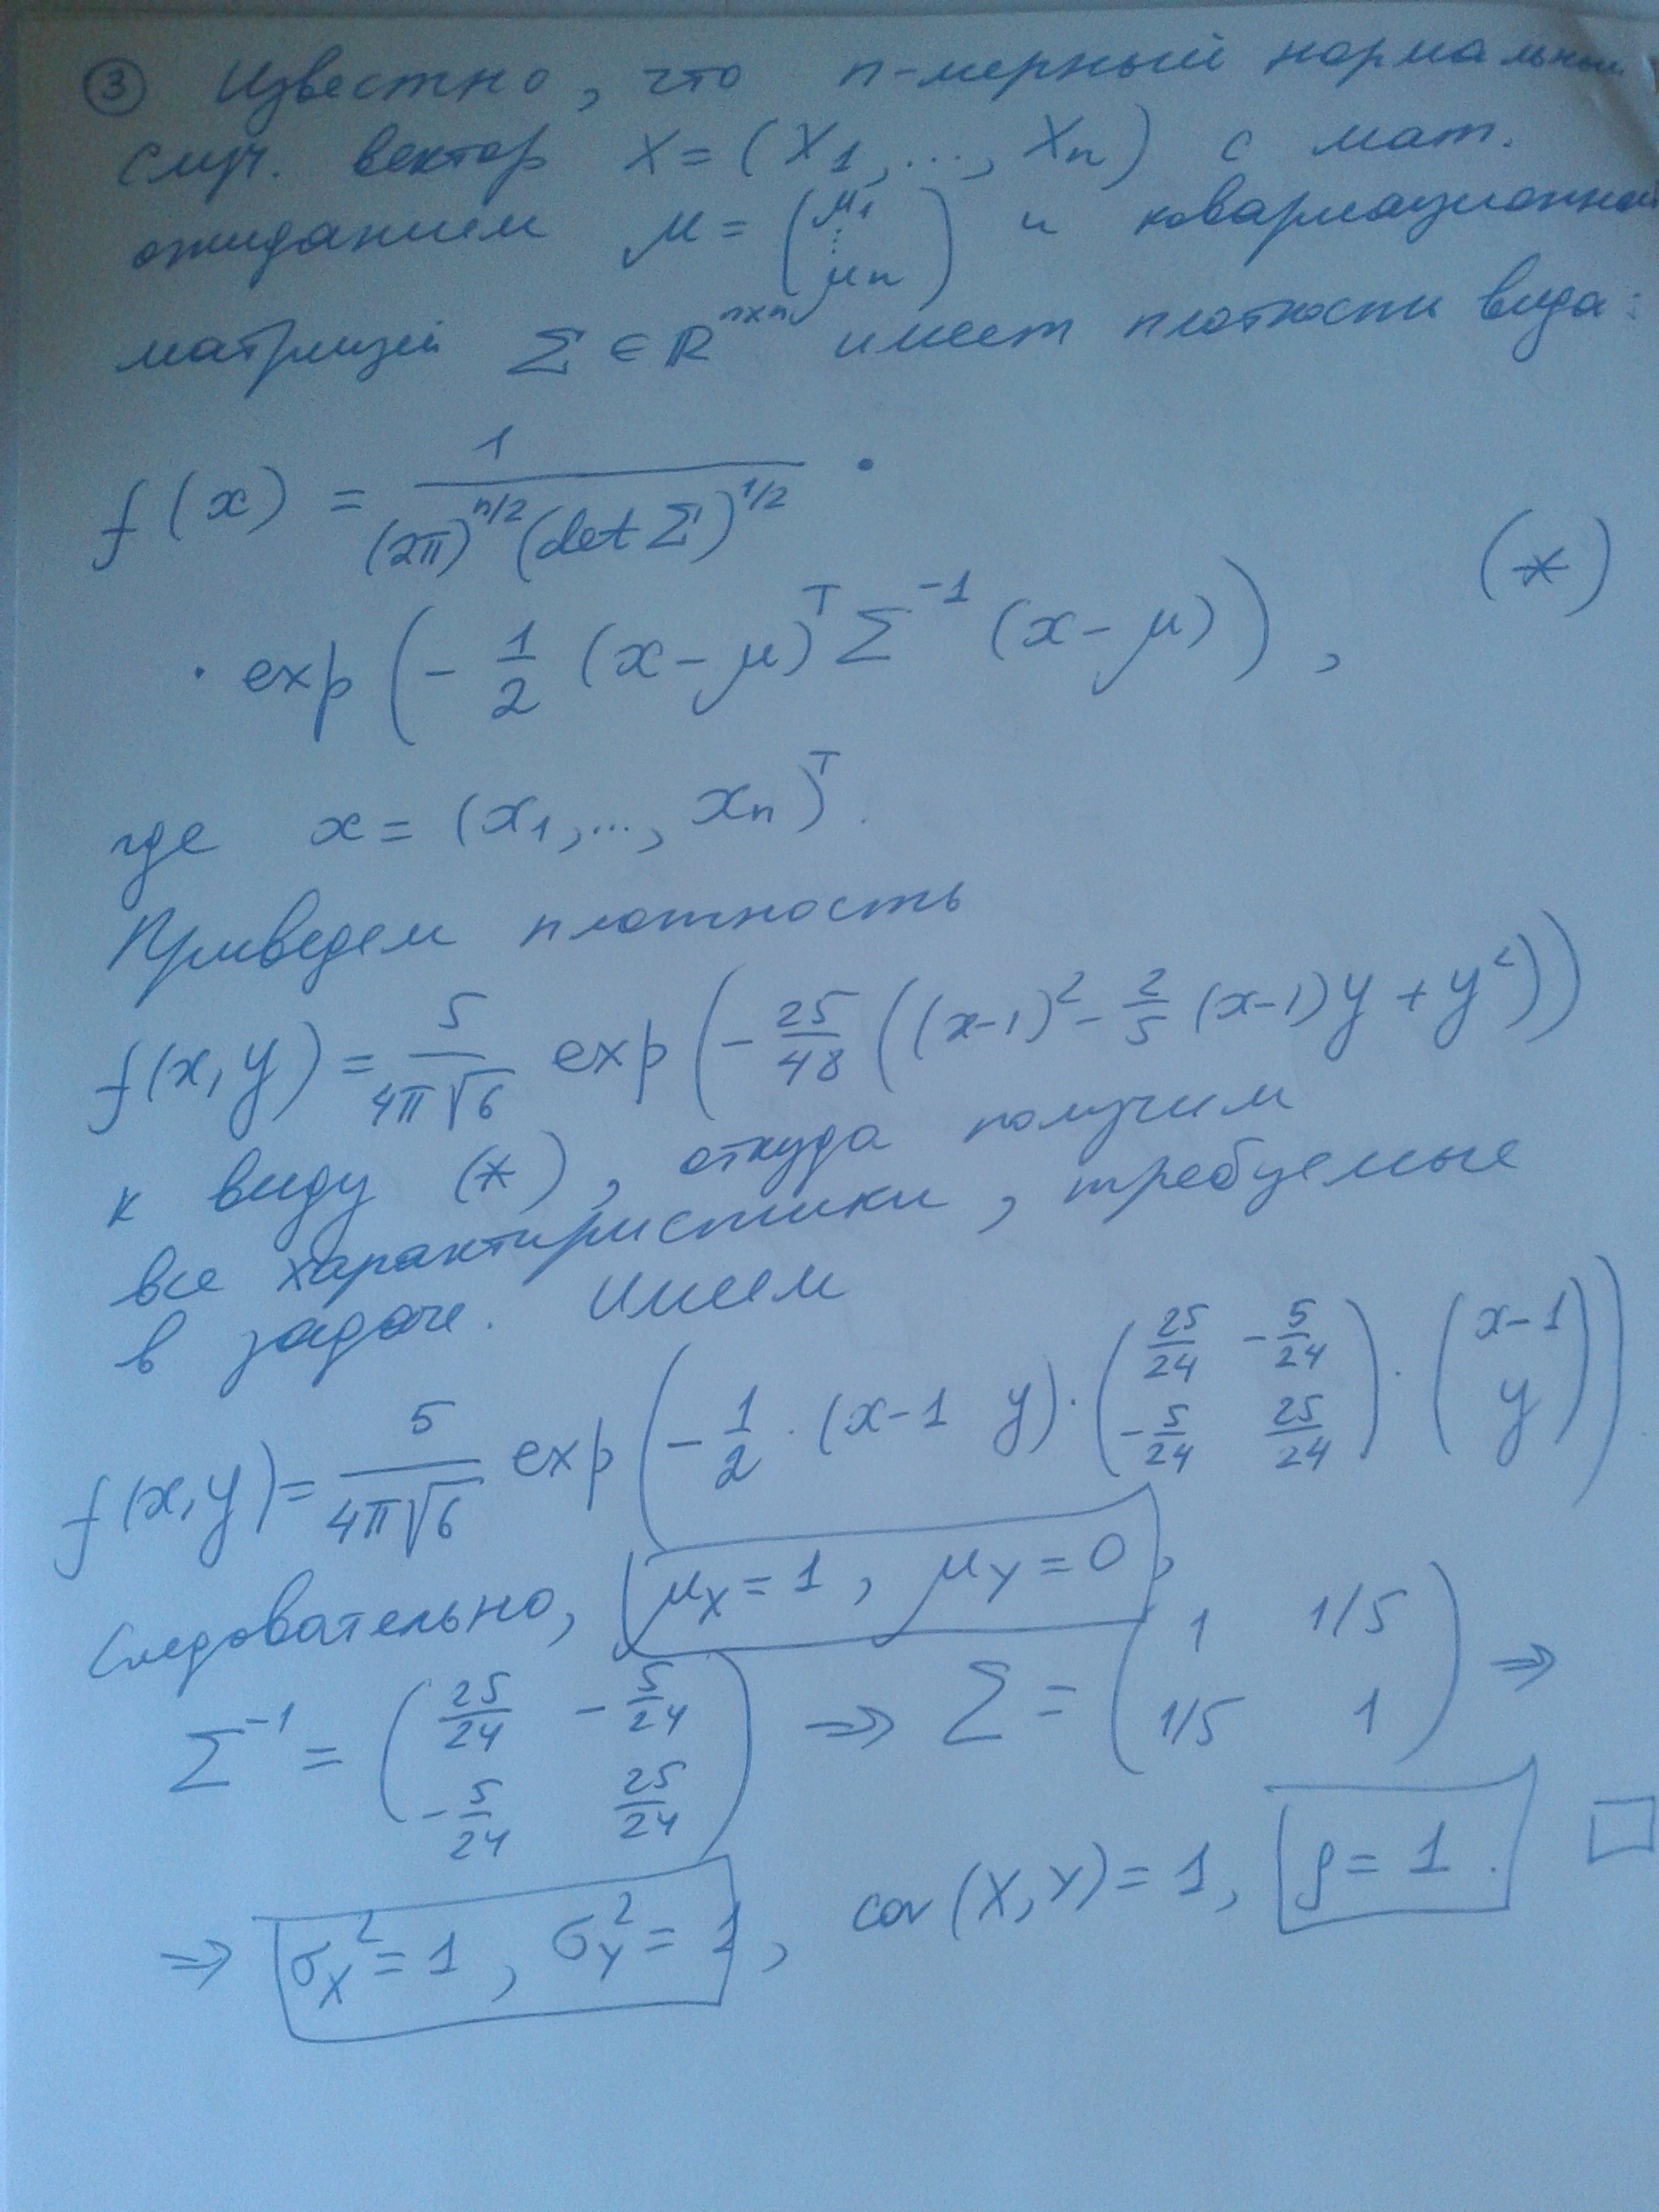 ③ Известно, что n-мерный нормальный
случ. вектор X = (X₁, ..., Xₙ) с мат.
ожиданием μ = (μ₁ ⋮ μₙ) и ковариационной
матрицей Σ ∈ ℝⁿˣⁿ имеет плотности вида:
f(x) = 1 / ((2π)^{n/2} (det Σ)^{1/2}) ·
· exp(-1/2 (x-μ)ᵀ Σ⁻¹ (x-μ)), (*)
где x = (x₁, ..., xₙ)ᵀ.
Приведем плотность
f(x,y) = 5/(4π√6) exp(-25/48 ((x-1)² - 2/5 (x-1)y + y²))
к виду (*), откуда получим
все характиристики, требуемые
в задаче. Имеем
f(x,y) = 5/(4π√6) exp(-1/2 · (x-1 y) · (25/24 -5/24; -5/24 25/24) · (x-1; y)).
Следовательно, μ_X = 1, μ_Y = 0,
Σ⁻¹ = (25/24 -5/24; -5/24 25/24) ⇒ Σ = (1 1/5; 1/5 1) ⇒
⇒ σ_X² = 1, σ_Y² = 1, cov(X,Y) = 1, ρ = 1. □